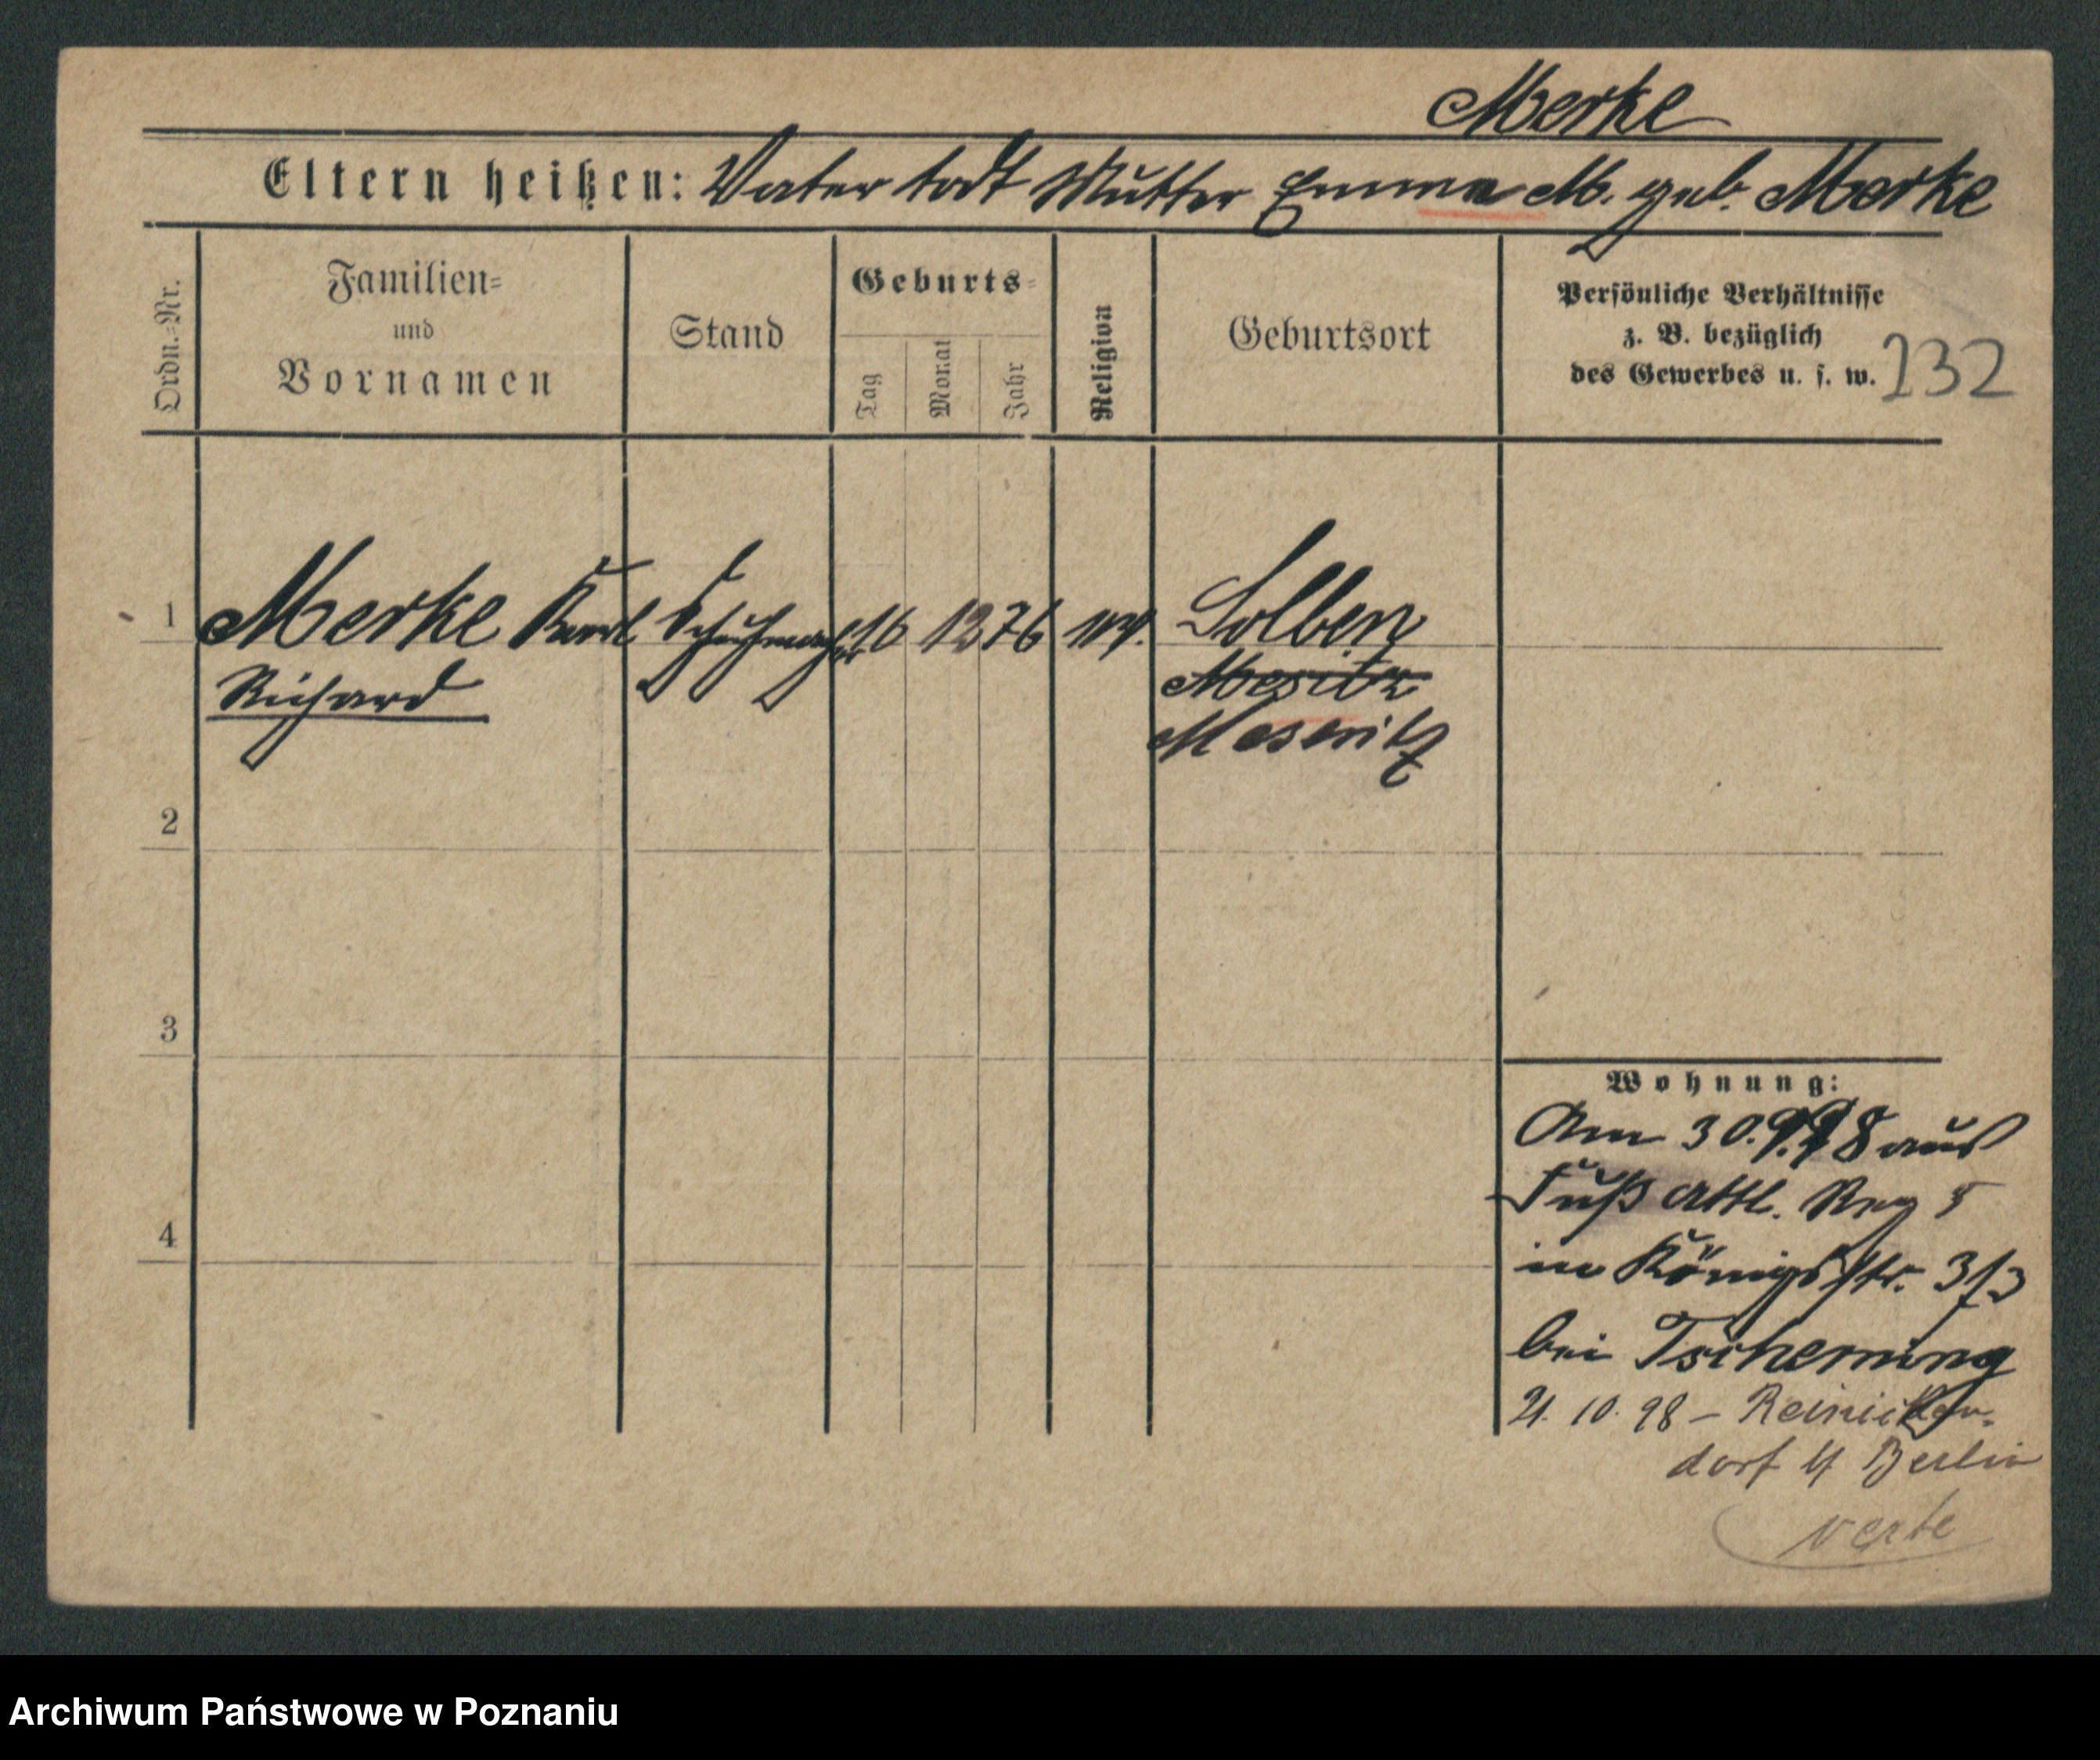 Merke
Eltern heißen: Vater todt Mutter Emma M. geb. Merke
Ordn.-Nr.
Familien-
und
Vornamen
Stand
Geburts-
Tag
Monat
Jahr
Religion
Geburtsort
Persönliche Verhältnisse
z. B. bezüglich
des Gewerbes u. s. w.
232
1 Merke Karl Schuhmacher 16 12 76 Solben
Richard
Mesritz
Meseritz
2
3
4
Wohnung:
Am 30.9.98 aus
Fuß Attl. Reg 5
in Königstr. 3/3
bei Tscherning
21. 10. 98 – Reinicken-
dorf b/ Berlin
verte
Archiwum Państwowe w Poznaniu